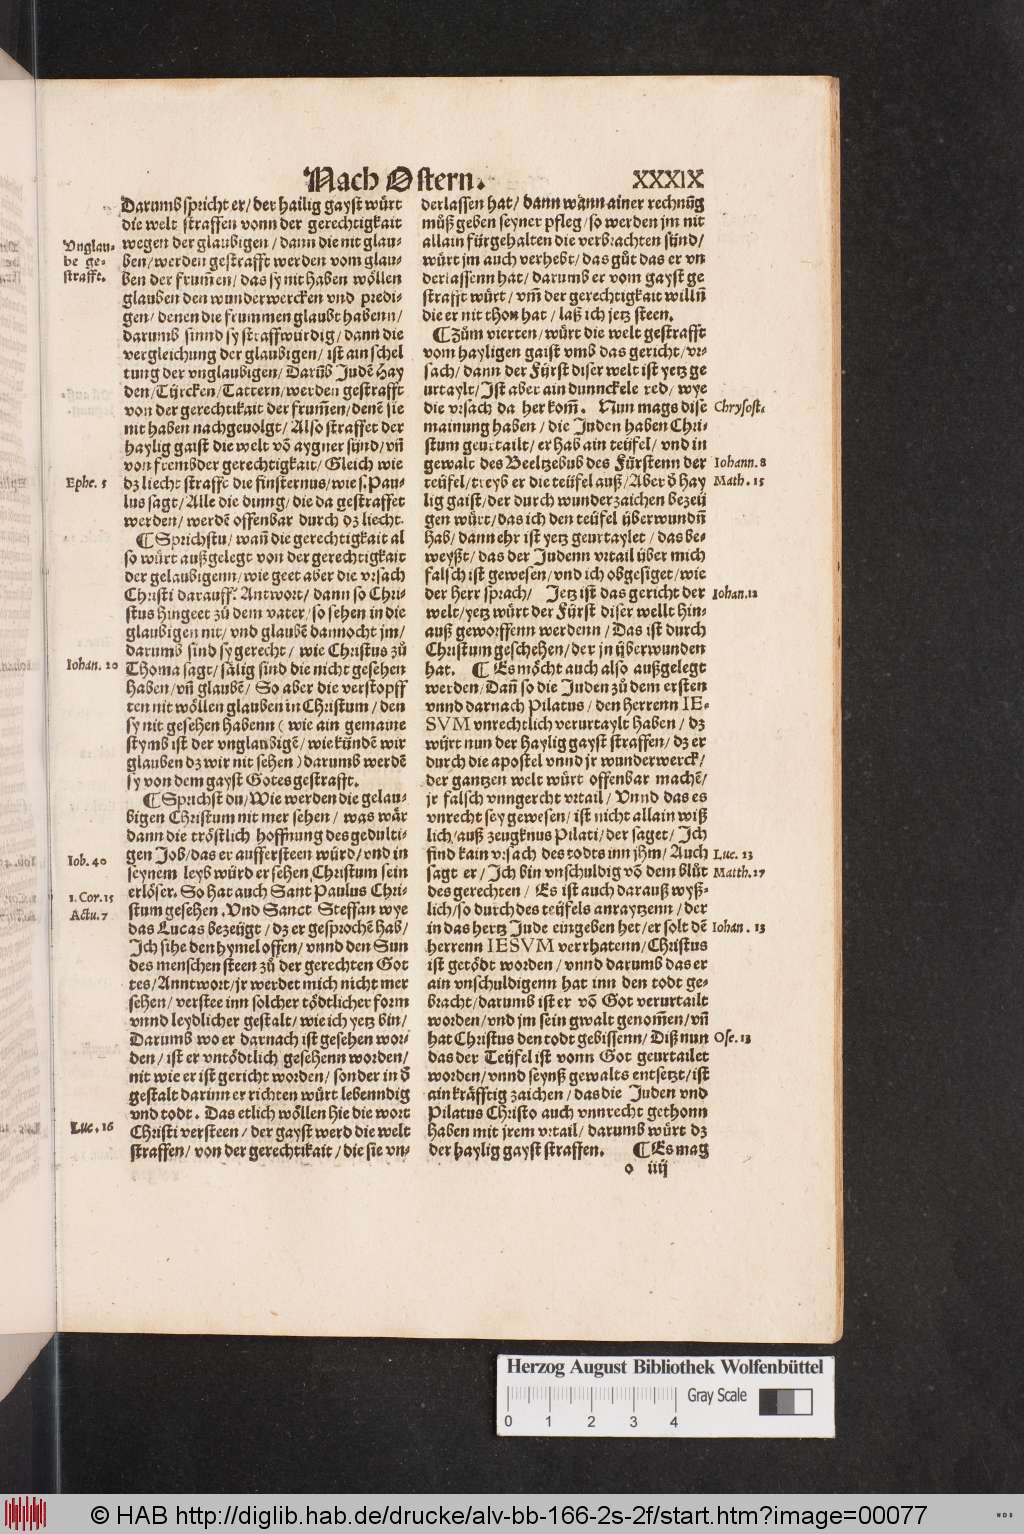 Nach Ostern. XXXIX
Darumb spricht er / der hailig gayst würt
die welt straffen vonn der gerechtigkait
wegen der glaubigen / dann die nit glau-
ben / werden gestrafft werden vom glau-
ben der frum̄en / das sy nit haben wöllen
glauben den wunderwercken vnd predi-
gen / denen die frummen glaubt habenn /
darumb sinnd sy straffwürdig / dann die
vergleichung der glaubigen / ist ain schel
tung der vnglaubigen / Darūb Judē Hay
den / Türcken / Tattern / werden gestrafft
von der gerechtikait der frum̄en / denē sie
nit haben nachgeuolgt / Also straffet der
haylig gaist die welt vō aygner sünd / vñ
von frembder gerechtigkait / Gleich wie
dz liecht strafft die finsternus / wie s. Pau-
lus sagt / Alle die dinng / die da gestraffet
werden / werdē offenbar durch dz liecht.
¶ Sprichstu / wañ die gerechtigkait al
so würt außgelegt von der gerechtigkait
der gelaubigenn / wie geet aber die vrsach
Christi darauff. Antwort / dann so Chri-
stus hingeet zů dem vater / so sehen in die
glaubigen nit / vnd glaubē dannocht jm /
darumb sind sy gerecht / wie Christus zů
Thoma sagt / sälig sind die nicht gesehen
haben / vñ glaubē / So aber die verstopff
ten nit wöllen glauben in Christum / den
sy nit gesehen habenn ( wie ain gemaine
stymb ist der vnglaubigē / wie kündē wir
glauben dz wir nit sehen ) darumb werdē
sy von dem gayst Gotes gestrafft.
¶ Sprichst du / Wie werden die gelau-
bigen Christum nit mer sehen / was wär
dann die tröstlich hoffnung des gedulti-
gen Job / das er auffersteen würd / vnd in
seynem leyb würd er sehen Christum sein
erlöser. So hat auch Sant Paulus Chri-
stum gesehen. Vnd Sanct Steffan wye
das Lucas bezeügt / dz er gesprochē hab /
Ich sihe den hymel offen / vnnd den Sun
des menschen steen zů der gerechten Got
tes / Anntwort / jr werdet mich nicht mer
sehen / verstee inn solcher tödtlicher form
vnnd leydlicher gestalt / wie ich yetz bin /
Darumb wo er darnach ist gesehen wor-
den / ist er vntödtlich gesehenn worden /
nit wie er ist gericht worden / sonder in ð
gestalt darinn er richten würt lebenndig
vnd todt. Das etlich wöllen hie die wort
Christi versteen / der gayst werd die welt
straffen / von der gerechtikait / die sie vn-
Vnglau-
be ge-
strafft.
Ephe. 5
Iohan. 20
Iob. 40
1. Cor. 15
Actu. 7
Luc. 16
derlassen hat / dann wann ainer rechnūg
můß geben seyner pfleg / so werden jm nit
allain fürgehalten die verbrachten sünd /
würt jm auch verhebt / das gůt das er vn
derlassenn hat / darumb er vom gayst ge
strafft würt / vm̄ der gerechtigkait willñ
die er nit thon hat / laß ich jetz steen.
¶ Zům vierten / würt die welt gestrafft
vom hayligen gaist vmb das gericht / vr-
sach / dann der Fürst diser welt ist yetz ge
urtaylt / Ist aber ain dunnckele red / wye
die vrsach da her kom̄. Nun mags dise
mainung haben / die Juden haben Chri-
stum geurtailt / er hab ain teüfel / vnd in
gewalt des Beeltzebub des Fürstenn der
teüfel / treyb er die teüfel auß / Aber ð hay
lig gaist / der durch wunderzaichen bezeü
gen würt / das ich den teüfel überwundñ
hab / dann ehr ist yetz geurtaylet / das be-
weyßt / das der Judenn vrtail über mich
falsch ist gewesen / vnd ich obgesiget / wie
der Herr sprach / Jetz ist das gericht der
welt / yetz würt der Fürst diser wellt hin-
auß geworffenn werdenn / Das ist durch
Christum geschehen / der jn überwunden
hat. ¶ Es möcht auch also außgelegt
werden / Dañ so die Juden zů dem ersten
vnnd darnach Pilatus / den herrenn IE-
SVM vnrechtlich verurtaylt haben / dz
würt nun der haylig gayst straffen / dz er
durch die apostel vnnd jr wunderwerck /
der gantzen welt würt offenbar machē /
jr falsch vnngercht vrtail / Vnnd das es
vnrecht sey gewesen / ist nicht allain wiß
lich / auß zeugknus Pilati / der saget / Ich
find kain vrsach des todts inn jhm / Auch
sagt er / Ich bin vnschuldig vō dem blůt
des gerechten / Es ist auch darauß wyß-
lich / so durch des teüfels anraytzenn / der
in das hertz Jude eingeben het / er solt dē
herrenn IESVM verrhatenn / Christus
ist getödt worden / vnnd darumb das er
ain vnschuldigenn hat inn den todt ge-
bracht / darumb ist er vō Got verurtailt
worden / vnd jm sein gwalt genom̄en / vñ
hat Christus den todt gebissenn / Diß nun
das der Teüfel ist vonn Got geurtailet
worden / vnnd seynß gewalts entsetzt / ist
ain kräfftig zaichen / das die Juden vnd
Pilatus Christo auch vnnrecht gethonn
haben mit jrem vrtail / darumb würt dz
der haylig gayst straffen. ¶ Es mag
o iiij
Chrysost.
Iohann. 8
Math. 15
Iohan. 12
Luc. 23
Matth. 27
Iohan. 13
Ose. 13
Herzog August Bibliothek Wolfenbüttel
Gray Scale
0 1 2 3 4
© HAB http://diglib.hab.de/drucke/alv-bb-166-2s-2f/start.htm?image=00077